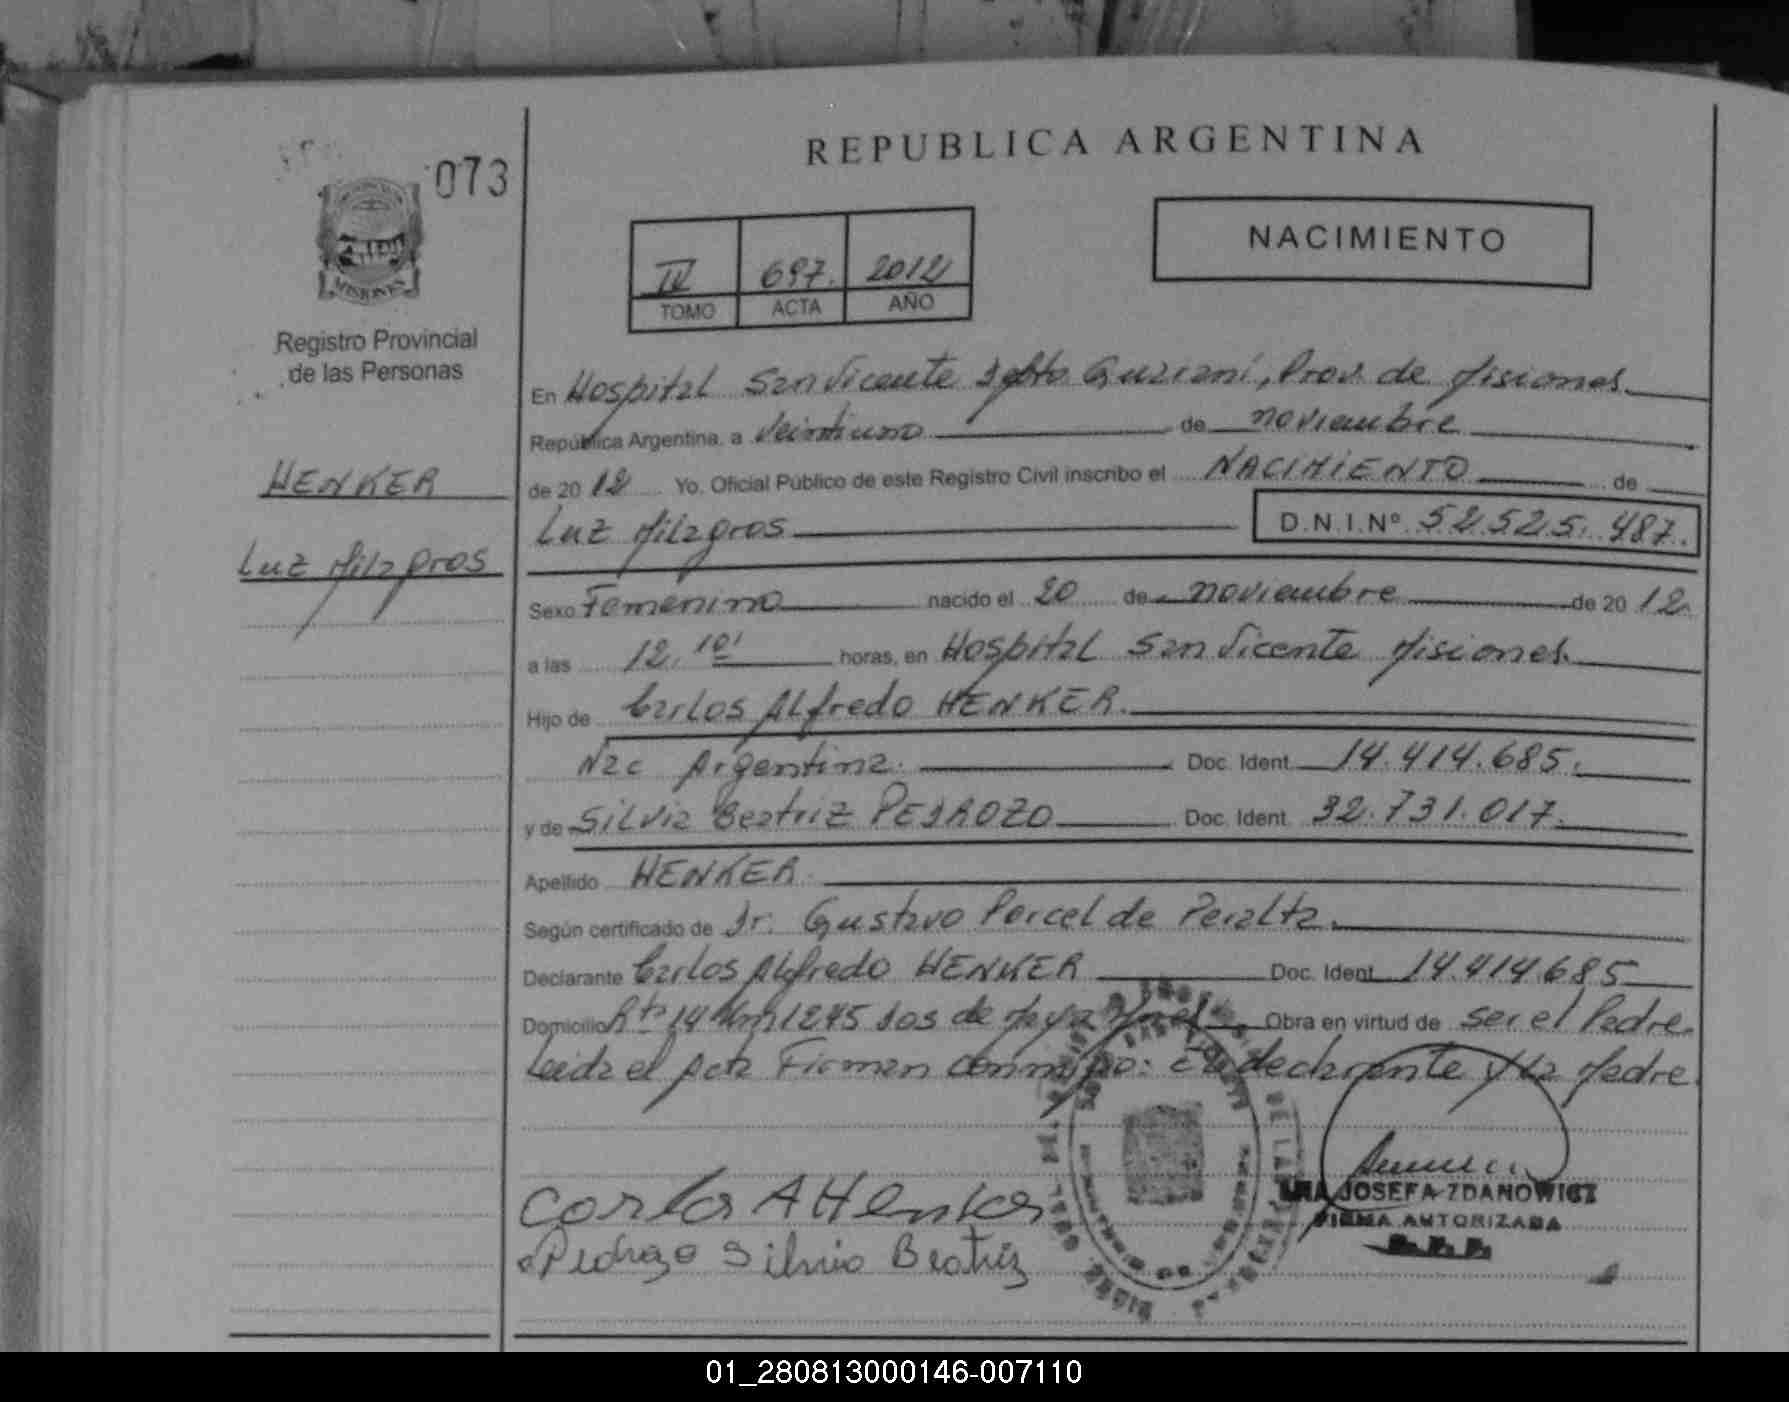 REPUBLICA ARGENTINA
073
NACIMIENTO
IV 697. 2012
TOMO ACTA AÑO
MISIONES
Registro Provincial
de las Personas
En Hospital San Vicente Dpto Guaraní, Prov. de Misiones
República Argentina, a Veintiuno de noviembre
de 20 12 Yo. Oficial Público de este Registro Civil inscribo el NACIMIENTO de
HENKER
Luz Milagros D.N.I.Nº 52.525.487.
Luz Milagros
Sexo Femenino nacido el 20 de noviembre de 20 12.
a las 12,10' horas, en Hospital San Vicente Misiones
Hijo de Carlos Alfredo HENKER.
Nac Argentina. Doc. Ident. 14.414.685.
y de Silvia Beatriz PEDROZO Doc. Ident. 32.731.017.
Apellido HENKER.
Según certificado de Dr. Gustavo Porcel de Peralta.
Declarante Carlos Alfredo HENKER Doc. Ident. 14.414.685
Domicilio Rta 14 Km 1245 Dos de Mayo Mnes Obra en virtud de ser el Padre.
Leida el Acta Firman conmigo: El declarante y la Madre.
Carlos A Henker
Pedrozo Silvia Beatriz
JOSEFA ZDANOWICZ
FIRMA AUTORIZADA
01_280813000146-007110